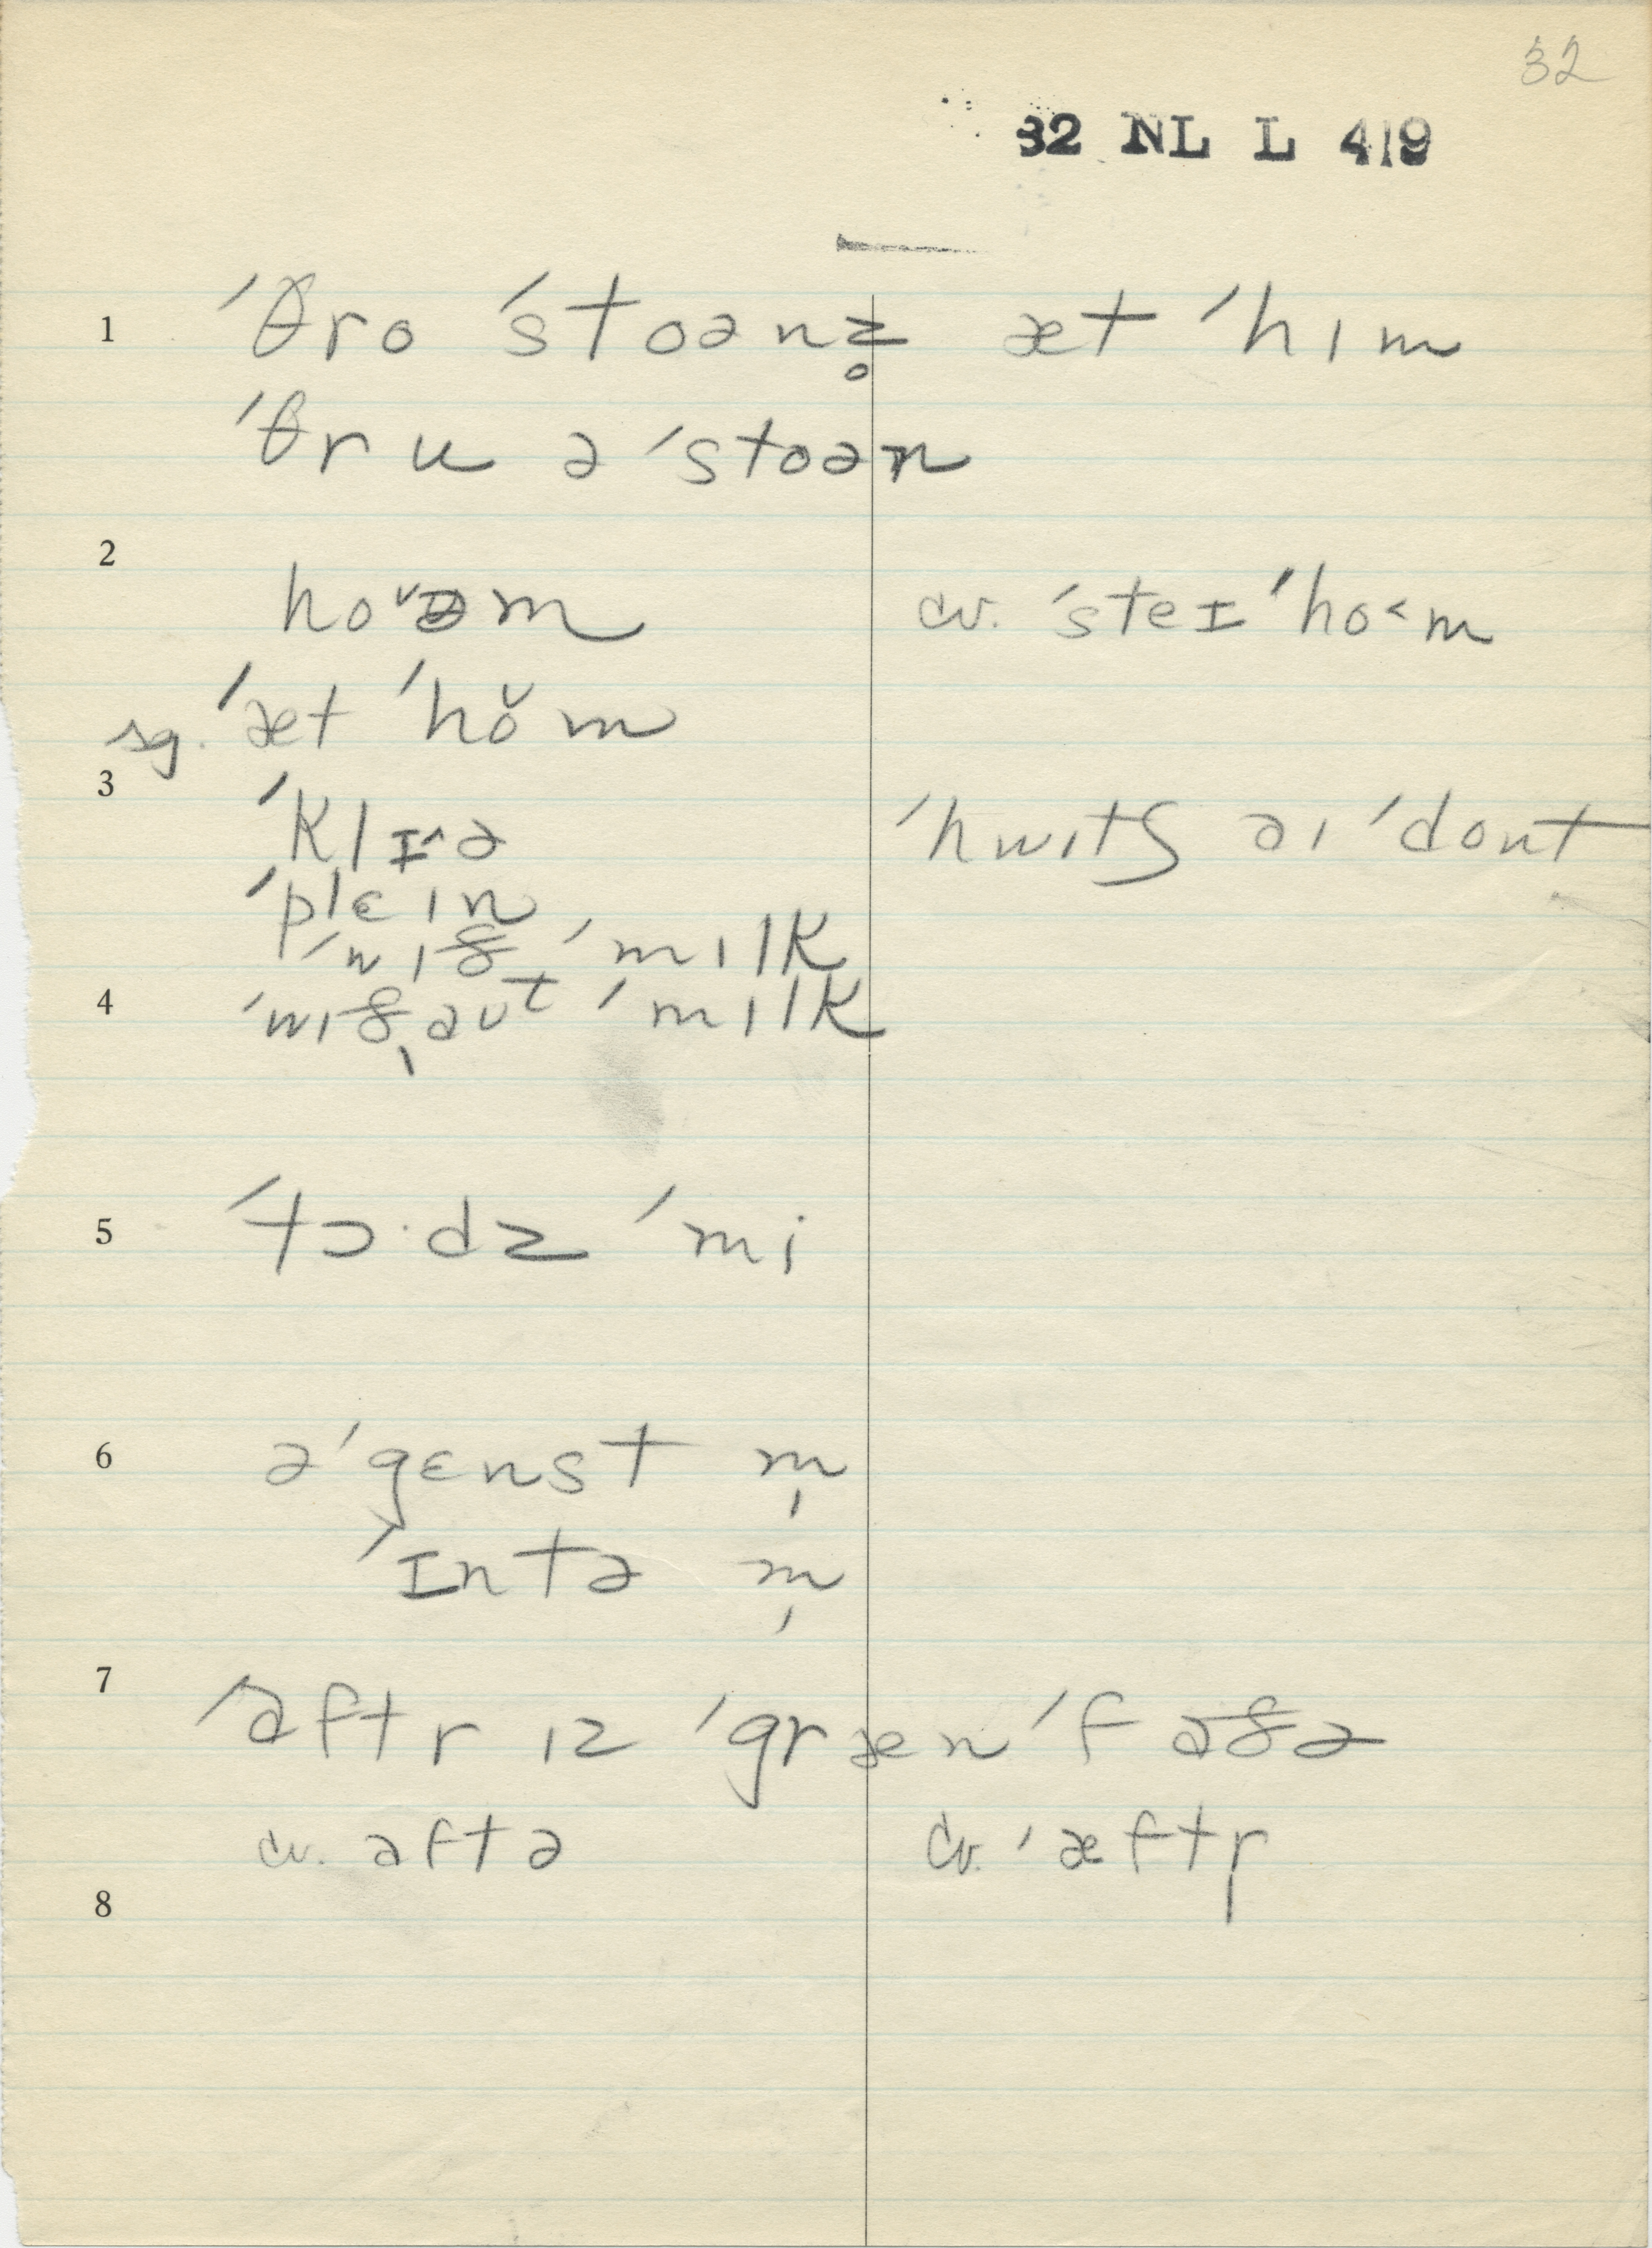 32
32 NL L 419
1 ˈθro ˈstoənz̥ æt ˈhɪm
ˈθru ə ˈstoən
2
hoˇəm cv. ˈsteɪ ˈho˂m
sg. ˈæt ˈhŏm
3 ˈklɪ^ə ˈhwɪtʃ aɪ ˈdont
ˈplɛɪn
ˈwɪð ˈmɪlk
4 ˈwɪðˌaʊt ˈmɪlk
5 ˈtɔ·dz ˈmi
6 əˈgɛnst m̩
ˈɪntə m̩
7 ˈaftr ɪz ˈgræn ˈfaðə
cv. aftə cv. ˈæftr̩
8